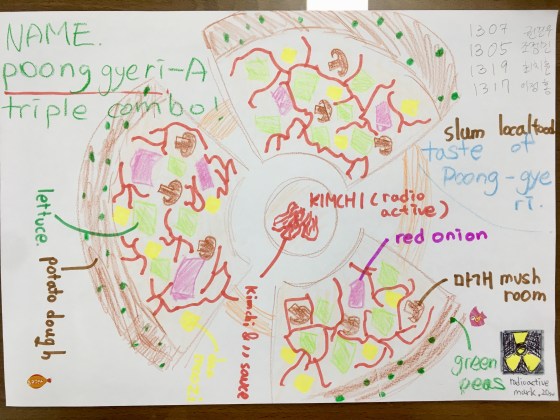 NAME.
poong gyeri-A
triple combo!
1307
1305
1319
1317
slum localfood
taste of
Poong-gye
ri.
KIMCHI (radio
active)
red onion
lettuce
potato dough
Kimchi &
sauce
mush
room
green
peas
radioactive
mark.